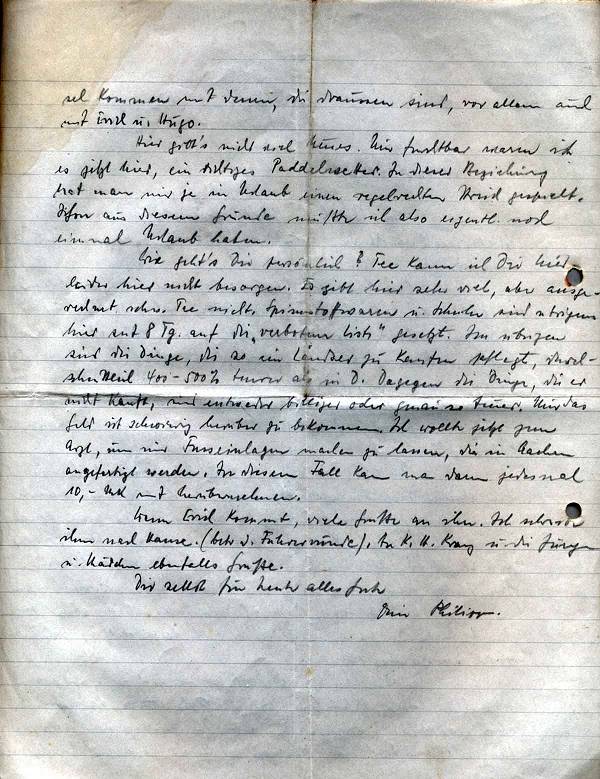 sel kommen mit denen, die draussen sind, vor allem auch
mit Erich u. Hugo.
Hier gibt's nicht viel Neues. Nur furchtbar warm ist
es jetzt hier, ein richtiges Paddelwetter. In dieser Beziehung
hat man mir ja im Urlaub einen regelrechten Streich gespielt.
Schon aus diesem Grunde müsste ich also eigentl. noch
einmal Urlaub haben.
Wie geht's Dir persönlich? Tee kann ich Dir
leider hier nicht besorgen. Es gibt hier sehr viel, aber ausge-
rechnet Tee nicht. Spinnstoffwaren u. Schuhe sind übrigens
hier seit 8 Tg. auf die "verbotene Liste" gesetzt. Im übrigen
sind die Dinge, die so ein Landser zu kaufen pflegt, durch-
schnittlich 400-500% teurer als in D. Dagegen die Dinge, die er
nicht kauft, sind entweder billiger oder genau so teuer. Nur das
Geld ist schwierig herüber zu bekommen. Ich wollte jetzt zum
Arzt, um mir Fusseinlagen machen zu lassen, die in Aachen
angefertigt werden. In diesem Fall kann man dann jedesmal
10,- RM mit herübernehmen.
Wenn Erich kommt, viele Grüße an ihn. Ich schreibe
ihm nach Hause. (betr. d. Führerrunde). An K. H. Kranz u. die Jungen
u. Mädchen ebenfalls Grüße.
Dir selbst für heute alles Gute
Dein Philipp.